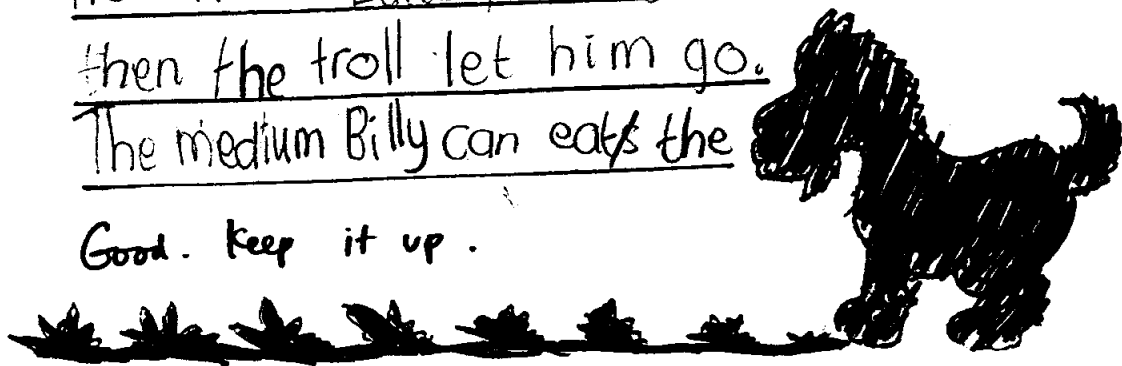 then the troll let him go.
The medium Billy can eat the
Good. Keep it up.